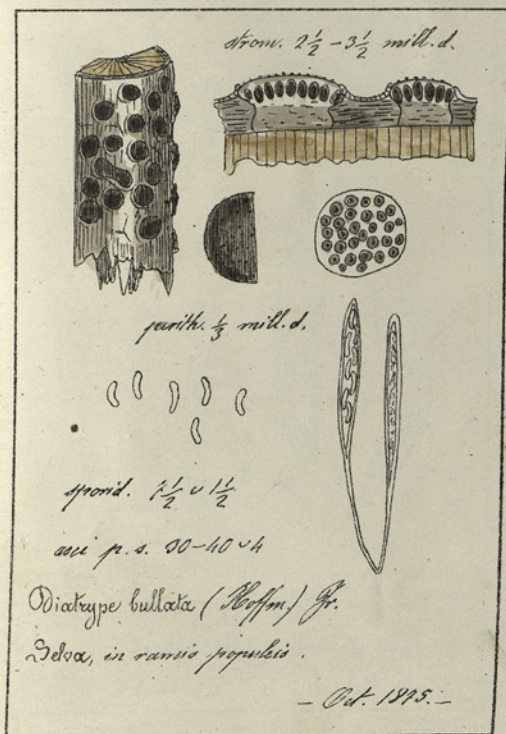 strom. 2 1/2 – 3 1/2 mill. d.
perith. 1/3 mill. d.
sporid. 7 1/2 ∪ 1 1/2
asci p. s. 30–40 ∪ 4
Diatrype bullata (Hoffm.) Fr.
Selva, in ramis populeis.
– Oct. 1895. –